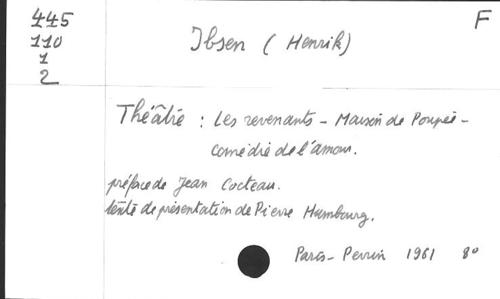 445
110
1
2
F
Ibsen (Henrik)
Théâtre : Les revenants - Maison de Poupée -
comédie de l'amour.
préface de Jean Cocteau.
texte de présentation de Pierre Humbourg.
Paris - Perrin 1961 8º